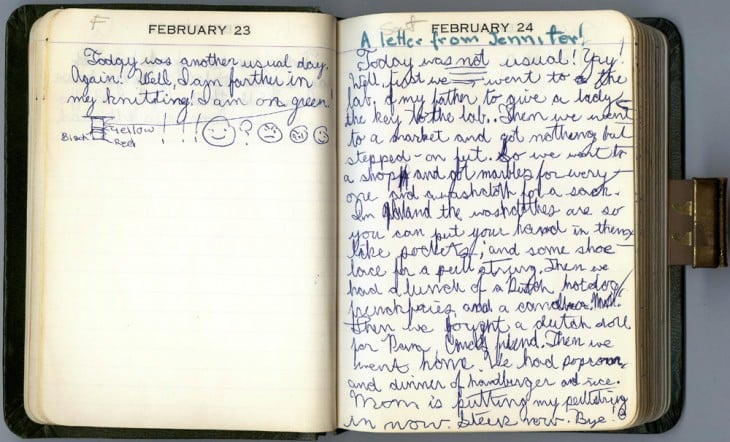 FEBRUARY 23
Today was another usual day.
Again! Well, I am farther in
my knitting! I am on green!
Black Yellow ! ! ! ?
Red
FEBRUARY 24
A letter from Jennifer!
Today was not usual! Yay!
Well, first we went to the
lab, of my father to give a lady
the key to the lab. Then we went
to a market and got nothing but
stepped-on fut. So we went to
a shop and got marbles for every-
one and a washcloth for a sack.
In the washclothes are so
you can put your hand in them
like pockets; and some shoe-
lace for a pull string. Then we
had a lunch of a Dutch hotdog
frenchfries and a
Then we bought a dutch doll
for friend. Then we
went home. We had popcorn,
and dinner of hamburger and rice.
Mom is putting my pullstring
in now. now. Bye!